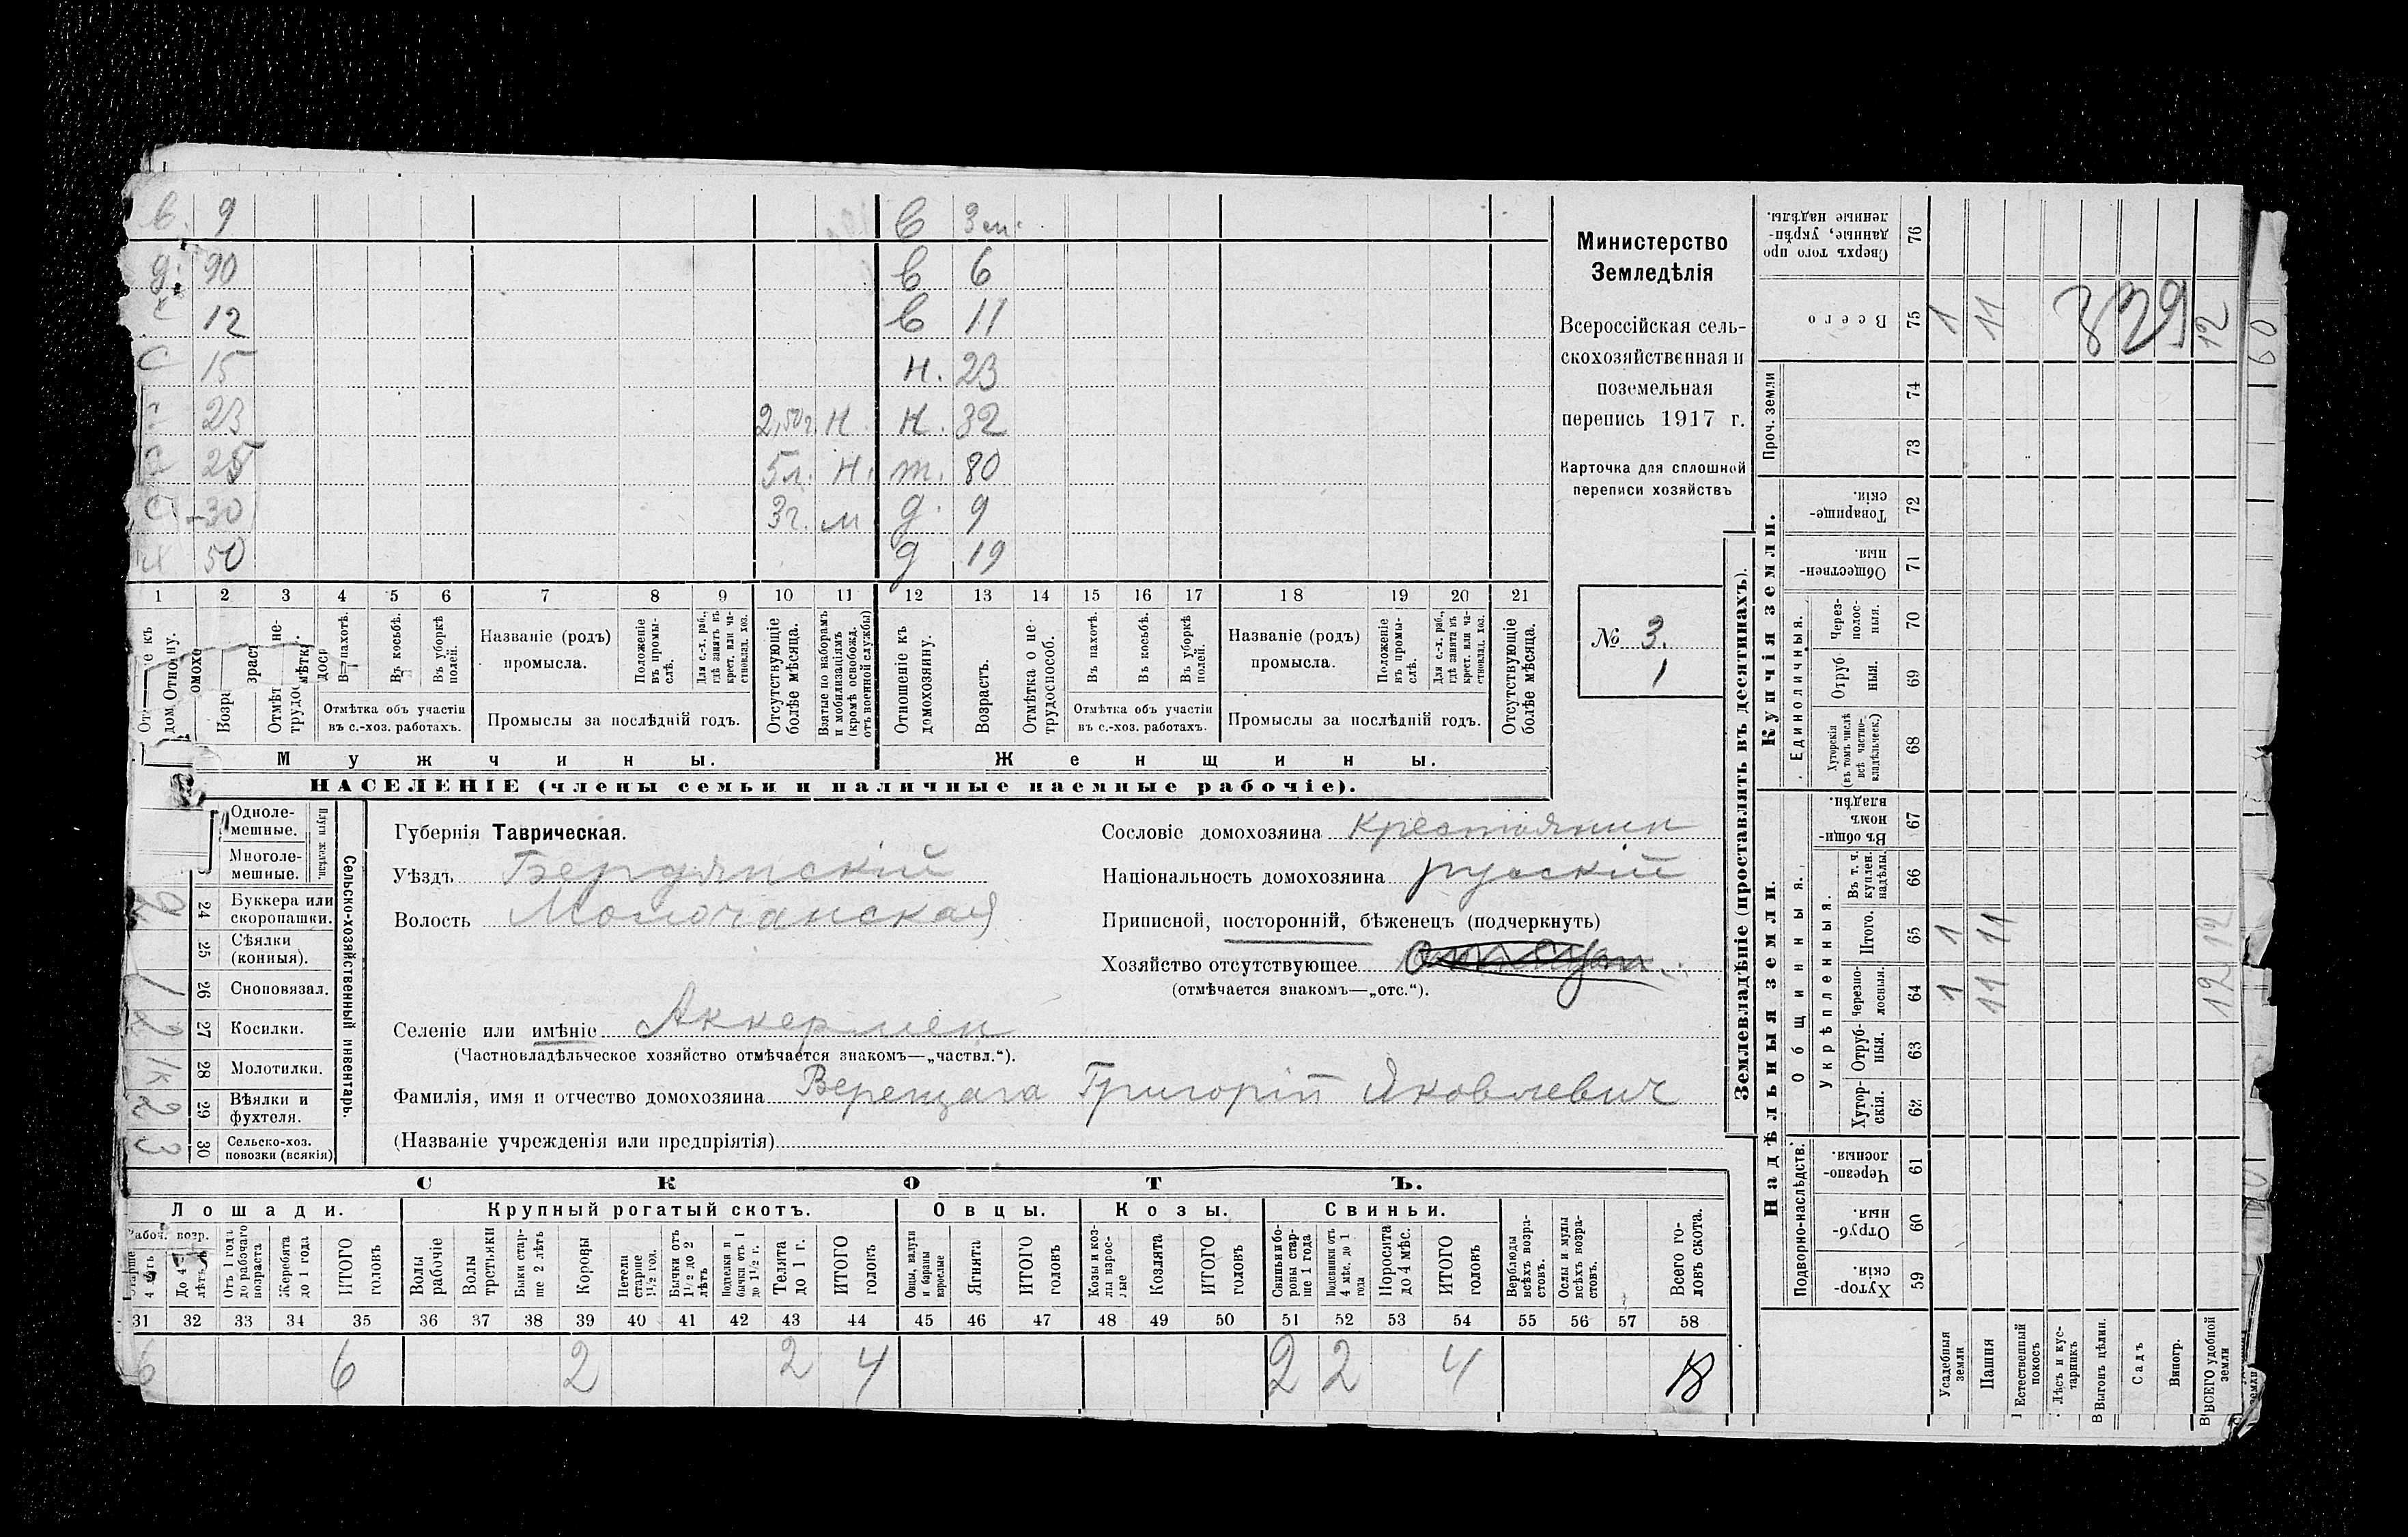 в. 9 в 3 м.
д. 90 в 6
с 12 в 11
с 15 н. 23
с 23 2,50 г. н. н. 32
с 25 5 л. н. т. 80
с 30 3 г. м д. 9
х 50 д 19
1 2 3 4 5 6 7 8 9 10 11 12 13 14 15 16 17 18 19 20 21
Въ пахотѣ. Въ косьбѣ. Въ уборкѣ полей.
Названіе (родъ) промысла.
Положеніе въ промыслѣ.
Для с.-х. раб., гдѣ занятъ въ крест. или частновлад. хоз.
Отмѣтка объ участіи въ с.-хоз. работахъ.
Промыслы за послѣдній годъ.
Отсутствующіе болѣе мѣсяца.
Взятые по наборамъ и мобилизаціямъ (кромѣ освобожд. отъ военной службы)
Отношеніе къ домохозяину.
Возрастъ.
Отмѣтка о нетрудоспособ.
Въ пахотѣ. Въ косьбѣ. Въ уборкѣ полей.
Названіе (родъ) промысла.
Положеніе въ промыслѣ.
Для с.-х. раб., гдѣ занята въ крест. или частновлад. хоз.
Отмѣтка объ участіи въ с.-хоз. работахъ.
Промыслы за послѣдній годъ.
Отсутствующіе болѣе мѣсяца.
Мужчины. Женщины.
НАСЕЛЕНІЕ (члены семьи и наличные наемные рабочіе).
Министерство
Земледѣлія
Всероссійская сель-
скохозяйственная и
поземельная
перепись 1917 г.
Карточка для сплошной
переписи хозяйствъ
№ 3.
1
Плуги желѣзн.
Одноле-
мешные.
Многоле-
мешные.
24 Буккера или
скоропашки.
25 Сѣялки
(конныя).
26 Сноповязал. 1
27 Косилки. 2
28 Молотилки. 1к
29 Вѣялки и
фухтеля. 2
30 Сельско-хоз.
повозки (всякія) 3
Сельско-хозяйственный инвентарь.
Губернія Таврическая.
Уѣздъ Бердянскій
Волость Молочанская
Сословіе домохозяина крестьянин
Національность домохозяина русскій
Приписной, посторонній, бѣженецъ (подчеркнуть)
Хозяйство отсутствующее
(отмѣчается знакомъ—„отс.“).
Селеніе или имѣніе Аккермен
(Частновладѣльческое хозяйство отмѣчается знакомъ—„частвл.“).
Фамилія, имя и отчество домохозяина Верещага Григорій Яковлевич
(Названіе учрежденія или предпріятія)
СКОТЪ.
Лошади. Крупный рогатый скотъ. Овцы. Козы. Свиньи.
Рабоч. возр.
До 4 лѣтъ
Отъ 1 года до рабочаго возраста
Жеребята до 1 года
ИТОГО головъ
Волы рабочіе
Волы третьяки
Быки старше 2 лѣтъ
Коровы
Нетели старше 1½ год.
Бычки отъ 1½ до 2 лѣтъ
Подтелки и бычки отъ 1 до 1½ г.
Телята до 1 г.
ИТОГО головъ
Овцы, валухи и бараны взрослые
Ягнята
ИТОГО головъ
Козы и козлы взрослые
Козлята
ИТОГО головъ
Свиньи и боровы старше 1 года
Подсвинки отъ 4 мѣс. до 1 года
Поросята до 4 мѣс.
ИТОГО головъ
Верблюды всѣхъ возрастовъ.
Ослы и мулы всѣхъ возрастовъ.
Всего головъ скота.
31 32 33 34 35 36 37 38 39 40 41 42 43 44 45 46 47 48 49 50 51 52 53 54 55 56 57 58
6 6 2 2 4 2 2 4 18
Землевладѣніе (проставлять въ десятинахъ).
Купчія земли.
Надѣльныя земли.
Сверхъ того проданные, укрѣпленные надѣлы. 76
Всего 75 1 11 12
Проч. земли 74 73
Товарищескія. 72
Общественныя. 71
Единоличныя.
Черезполосныя. 70
Отрубныя. 69
Хуторскія (въ томъ числѣ всѣ частновладѣльческ.) 68
Общинныя.
Въ общинномъ владѣн. 67
Укрѣпленныя.
Въ т. ч. куплен. надѣлы. 66
Итого. 65 1 11 12
Черезполосныя. 64 1 11 12
Отрубныя. 63
Хуторскія. 62
Подворно-наслѣдств.
Черезполосныя. 61
Отрубныя. 60
Хуторскія. 59
Усадебныя земли
Пашня
Естественный покосъ
Лѣсъ и кустарникъ
Выгонъ цѣлин.
Садъ
Виногр.
ВСЕГО удобной земли